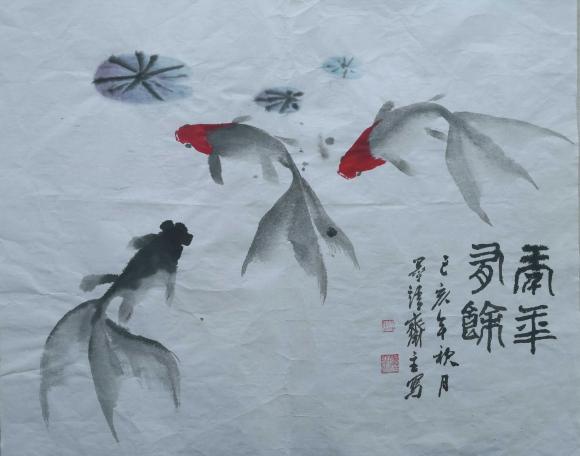 年年
有餘
己亥年秋月
墨清齋主写